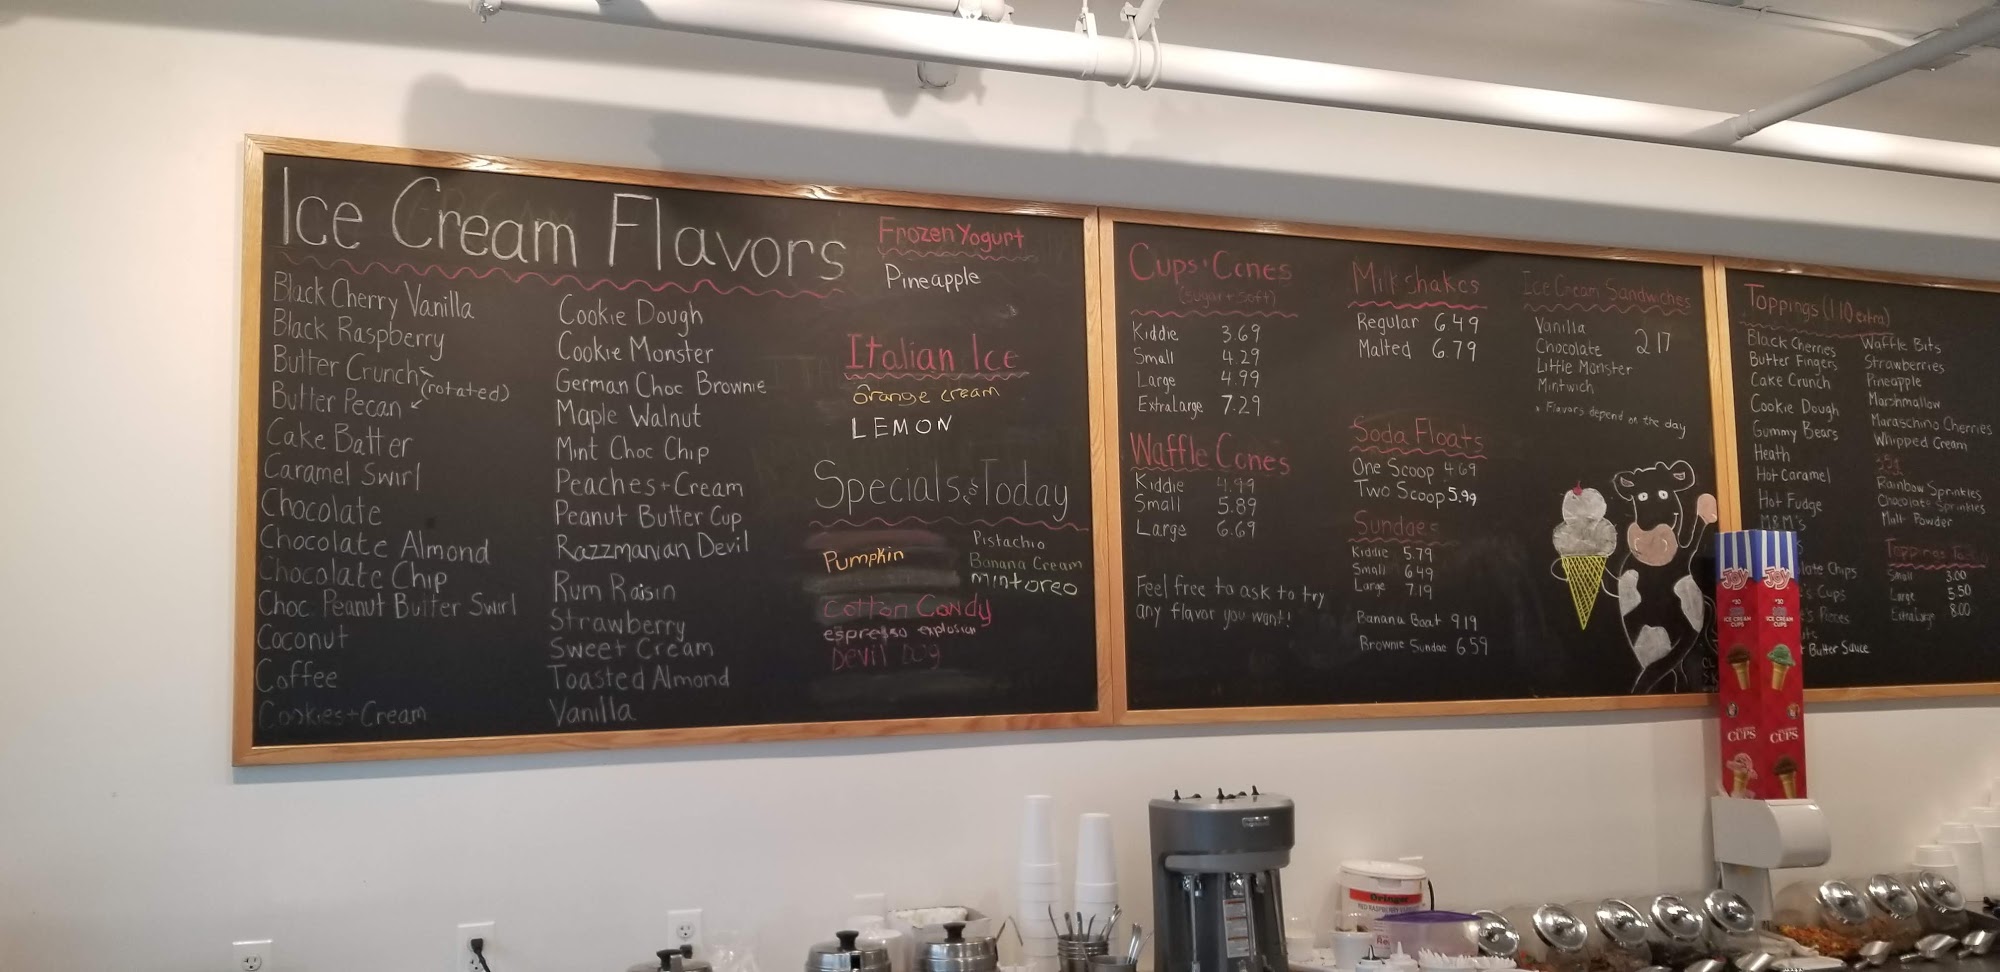 Ice Cream Flavors
Black Cherry Vanilla
Black Raspberry
Butter Crunch
(rotated)
Butter Pecan
Cake Batter
Caramel Swirl
Chocolate
Chocolate Almond
Chocolate Chip
Choc. Peanut Butter Swirl
Coconut
Coffee
Cookies+Cream
Cookie Dough
Cookie Monster
German Choc Brownie
Maple Walnut
Mint Choc Chip
Peaches+Cream
Peanut Butter Cup
Razzmanian Devil
Rum Raisin
Strawberry
Sweet Cream
Toasted Almond
Vanilla
Frozen Yogurt
Pineapple
Italian Ice
Orange cream
LEMON
Specials for Today
Pumpkin
Cotton Candy
espresso explosion
Devil Dog
Pistachio
Banana Cream
Mint oreo
Cups+Cones
(sugar+soft)
Kiddie 3.69
Small 4.29
Large 4.99
Extra Large 7.29
Waffle Cones
Kiddie 4.99
Small 5.89
Large 6.69
Feel free to ask to try
any flavor you want!!
Milkshakes
Regular 6.49
Malted 6.79
Soda Floats
One Scoop 4.69
Two Scoop 5.99
Sundaes
Kiddie 5.79
Small 6.49
Large 7.19
Banana Boat 9.19
Brownie Sundae 6.59
Ice Cream Sandwiches
Vanilla
Chocolate 2.17
Little Monster
Mintwich
* Flavors depend on the day
Toppings (1.10 extra)
Black Cherries
Butter Fingers
Cake Crunch
Cookie Dough
Gummy Bears
Heath
Hot Caramel
Hot Fudge
M&M's
late Chips
's Cups
's Pieces
Butter Sauce
Waffle Bits
Strawberries
Pineapple
Marshmallow
Maraschino Cherries
Whipped Cream
Rainbow Sprinkles
Chocolate Sprinkles
Malt Powder
Toppings To
Small 3.00
Large 5.50
Extra Large 8.00
JOY JOY
ICE CREAM CUPS
ICE CREAM CUPS
CUPS CUPS